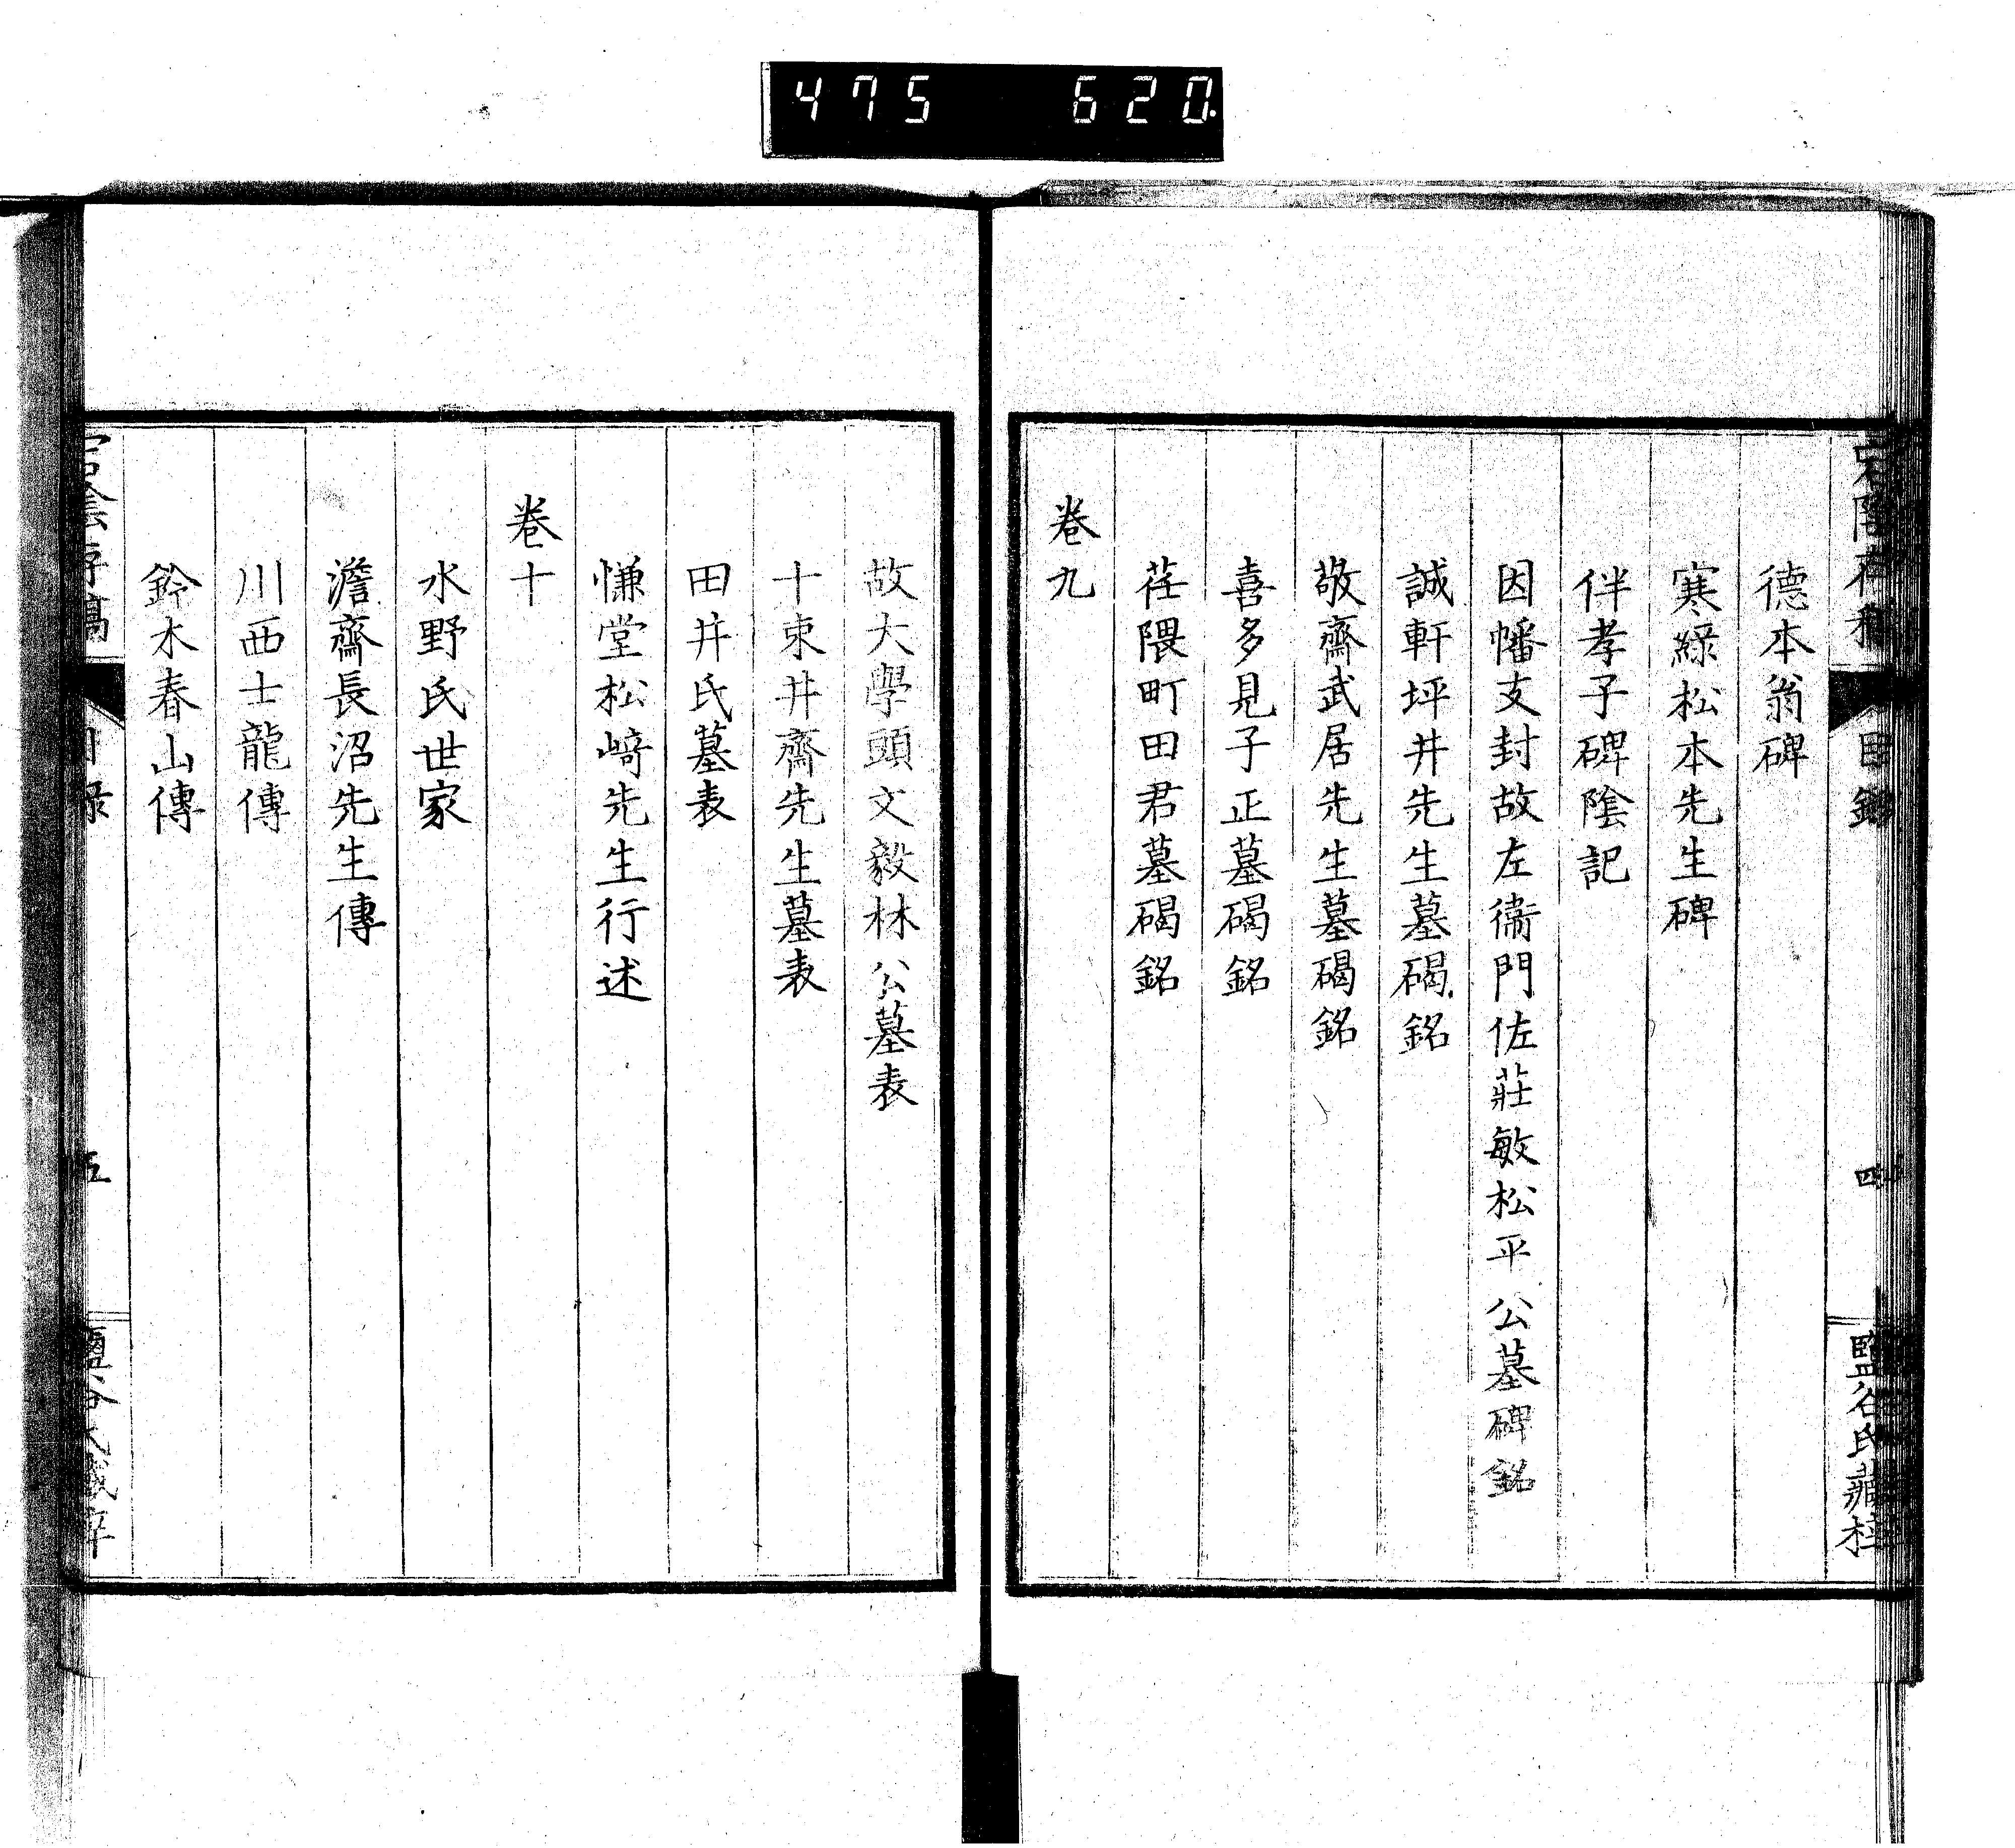 475 620
目錄
四
鹽谷氏藏
德本翁碑
寒綠松本先生碑
伴孝子碑陰記
因幡支封故左衞門佐莊敏松平公墓碑銘
誠軒坪井先生墓碣銘
敬齋武居先生墓碣銘
喜多見子正墓碣銘
荏隈町田君墓碣銘
卷九
故大學頭文毅林公墓表
十束井齋先生墓表
田井氏墓表
慊堂松﨑先生行述
卷十
水野氏世家
澹齋長沼先生傳
川西士龍傳
鈴木春山傳
五